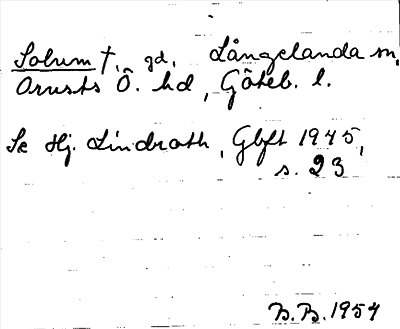 Solum †, gd, Långelanda sn,
Orusts Ö. hd, Göteb. l.
Se Hj. Lindroth, Gbft 1945,
s. 23
B.B. 1954